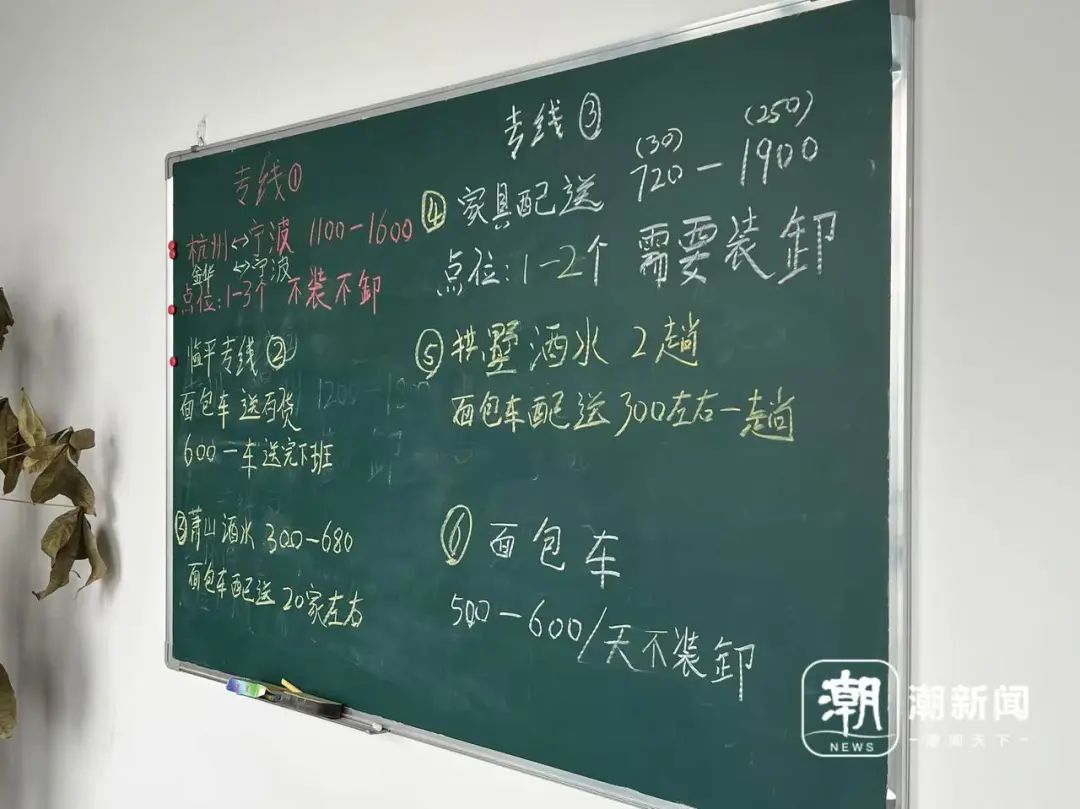 专线①
杭州↔宁波 1100-1600
金华↔宁波
点位:1-3个 不装不卸
临平专线②
面包车 送百货
600一车 送完下班
③萧山酒水 300-680
面包车配送 20家左右
专线③
(30) (250)
④家具配送 720-1900
点位:1-2个 需要装卸
⑤拱墅酒水 2趟
面包车配送300左右一趟
⑥面包车
500-600/天不装卸
潮
NEWS
潮新闻
潮闻天下